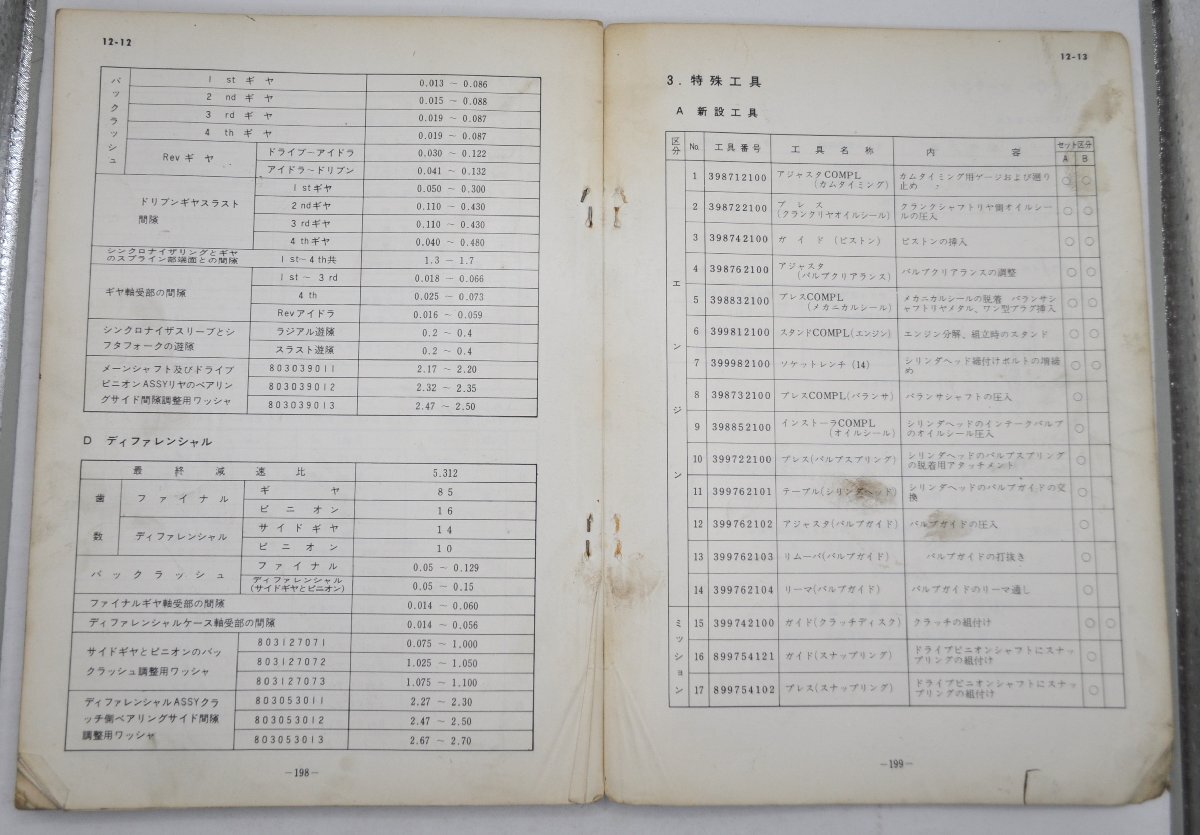 12-12
バックラッシュ
1 st ギ ヤ 0.013 ~ 0.086
2 nd ギ ヤ 0.015 ~ 0.088
3 rd ギ ヤ 0.019 ~ 0.087
4 th ギ ヤ 0.019 ~ 0.087
Rev ギ ヤ ドライブ－アイドラ 0.030 ~ 0.122
アイドラ－ドリブン 0.041 ~ 0.132
ドリブンギヤスラスト
間隙
1stギヤ 0.050 ~ 0.300
2ndギヤ 0.110 ~ 0.430
3rdギヤ 0.110 ~ 0.430
4thギヤ 0.040 ~ 0.480
シンクロナイザリングとギヤ
のスプライン部端面との間隙
1st~4th共 1.3 ~ 1.7
ギヤ軸受部の間隙
1st ~ 3rd 0.018 ~ 0.066
4th 0.025 ~ 0.073
Revアイドラ 0.016 ~ 0.059
シンクロナイザスリーブとシ
フタフォークの遊隙
ラジアル遊隙 0.2 ~ 0.4
スラスト遊隙 0.2 ~ 0.4
メーンシャフト及びドライブ
ピニオンASSYリヤのベアリン
グサイド間隙調整用ワッシャ
803039011 2.17 ~ 2.20
803039012 2.32 ~ 2.35
803039013 2.47 ~ 2.50
D ディファレンシャル
最 終 減 速 比 5.312
歯数
ファイナル
ギ ヤ 85
ピニオン 16
ディファレンシャル
サイドギヤ 14
ピニオン 10
バックラッシュ
ファイナル 0.05 ~ 0.129
ディファレンシャル
(サイドギヤとピニオン) 0.05 ~ 0.15
ファイナルギヤ軸受部の間隙 0.014 ~ 0.060
ディファレンシャルケース軸受部の間隙 0.014 ~ 0.056
サイドギヤとピニオンのバッ
クラッシュ調整用ワッシャ
803127071 0.075 ~ 1.000
803127072 1.025 ~ 1.050
803127073 1.075 ~ 1.100
ディファレンシャルASSYクラ
ッチ側ベアリングサイド間隙
調整用ワッシャ
803053011 2.27 ~ 2.30
803053012 2.47 ~ 2.50
803053013 2.67 ~ 2.70
－198－
12-13
3. 特殊工具
A 新設工具
区分 No. 工具番号 工具名称 内 容 セット区分
A B
エンジン
1 398712100 アジャスタCOMPL
(カムタイミング) カムタイミング用ゲージおよび廻り
止め ○ ○
2 398722100 プ レ ス
(クランクリヤオイルシール) クランクシャフトリヤ側オイルシー
ルの圧入 ○ ○
3 398742100 ガ イ ド (ピストン) ピストンの挿入 ○ ○
4 398762100 アジャスタ
(バルブクリアランス) バルブクリアランスの調整 ○ ○
5 398832100 プレスCOMPL
(メカニカルシール) メカニカルシールの脱着 バランサシ
ャフトリヤメタル、ワン型プラグ挿入 ○ ○
6 399812100 スタンドCOMPL(エンジン) エンジン分解、組立時のスタンド ○ ○
7 399982100 ソケットレンチ (14) シリンダヘッド締付けボルトの増締
め ○ ○
8 398732100 プレスCOMPL(バランサ) バランサシャフトの圧入 ○
9 398852100 インストーラCOMPL
(オイルシール) シリンダヘッドのインテークバルブ
のオイルシール圧入 ○
10 399722100 プレス(バルブスプリング) シリンダヘッドのバルブスプリング
の脱着用アタッチメント ○
11 399762101 テーブル(シリンダヘッド) シリンダヘッドのバルブガイドの交
換 ○
12 399762102 アジャスタ(バルブガイド) バルブガイドの圧入 ○
13 399762103 リムーバ(バルブガイド) バルブガイドの打抜き ○
14 399762104 リーマ(バルブガイド) バルブガイドのリーマ通し ○
ミッション
15 399742100 ガイド(クラッチディスク) クラッチの組付け ○ ○
16 899754121 ガイド(スナップリング) ドライブピニオンシャフトにスナッ
プリングの組付け ○
17 899754102 プレス(スナップリング) ドライブピニオンシャフトにスナッ
プリングの組付け ○
－199－